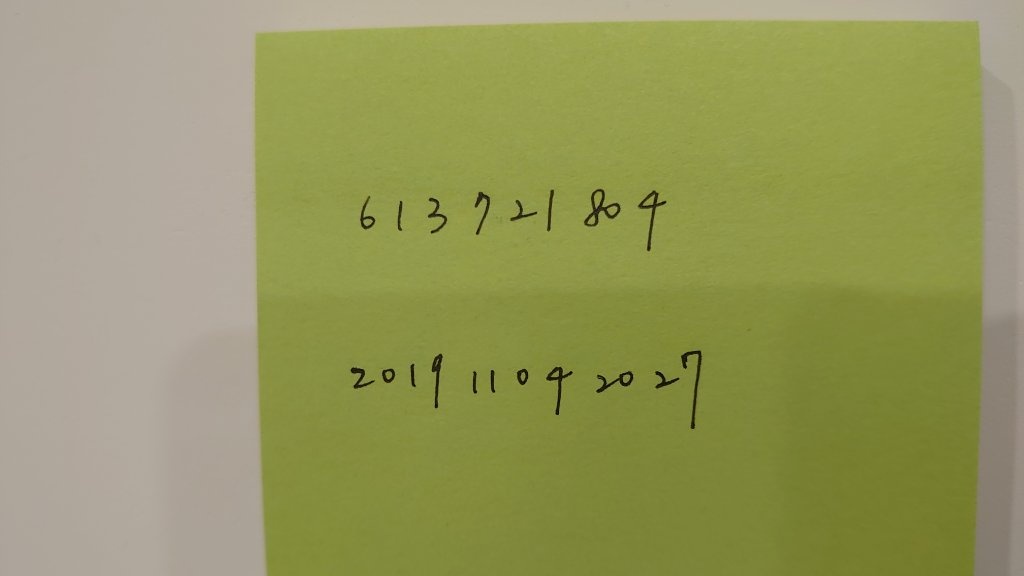 613 721 804
2019 1104 2027